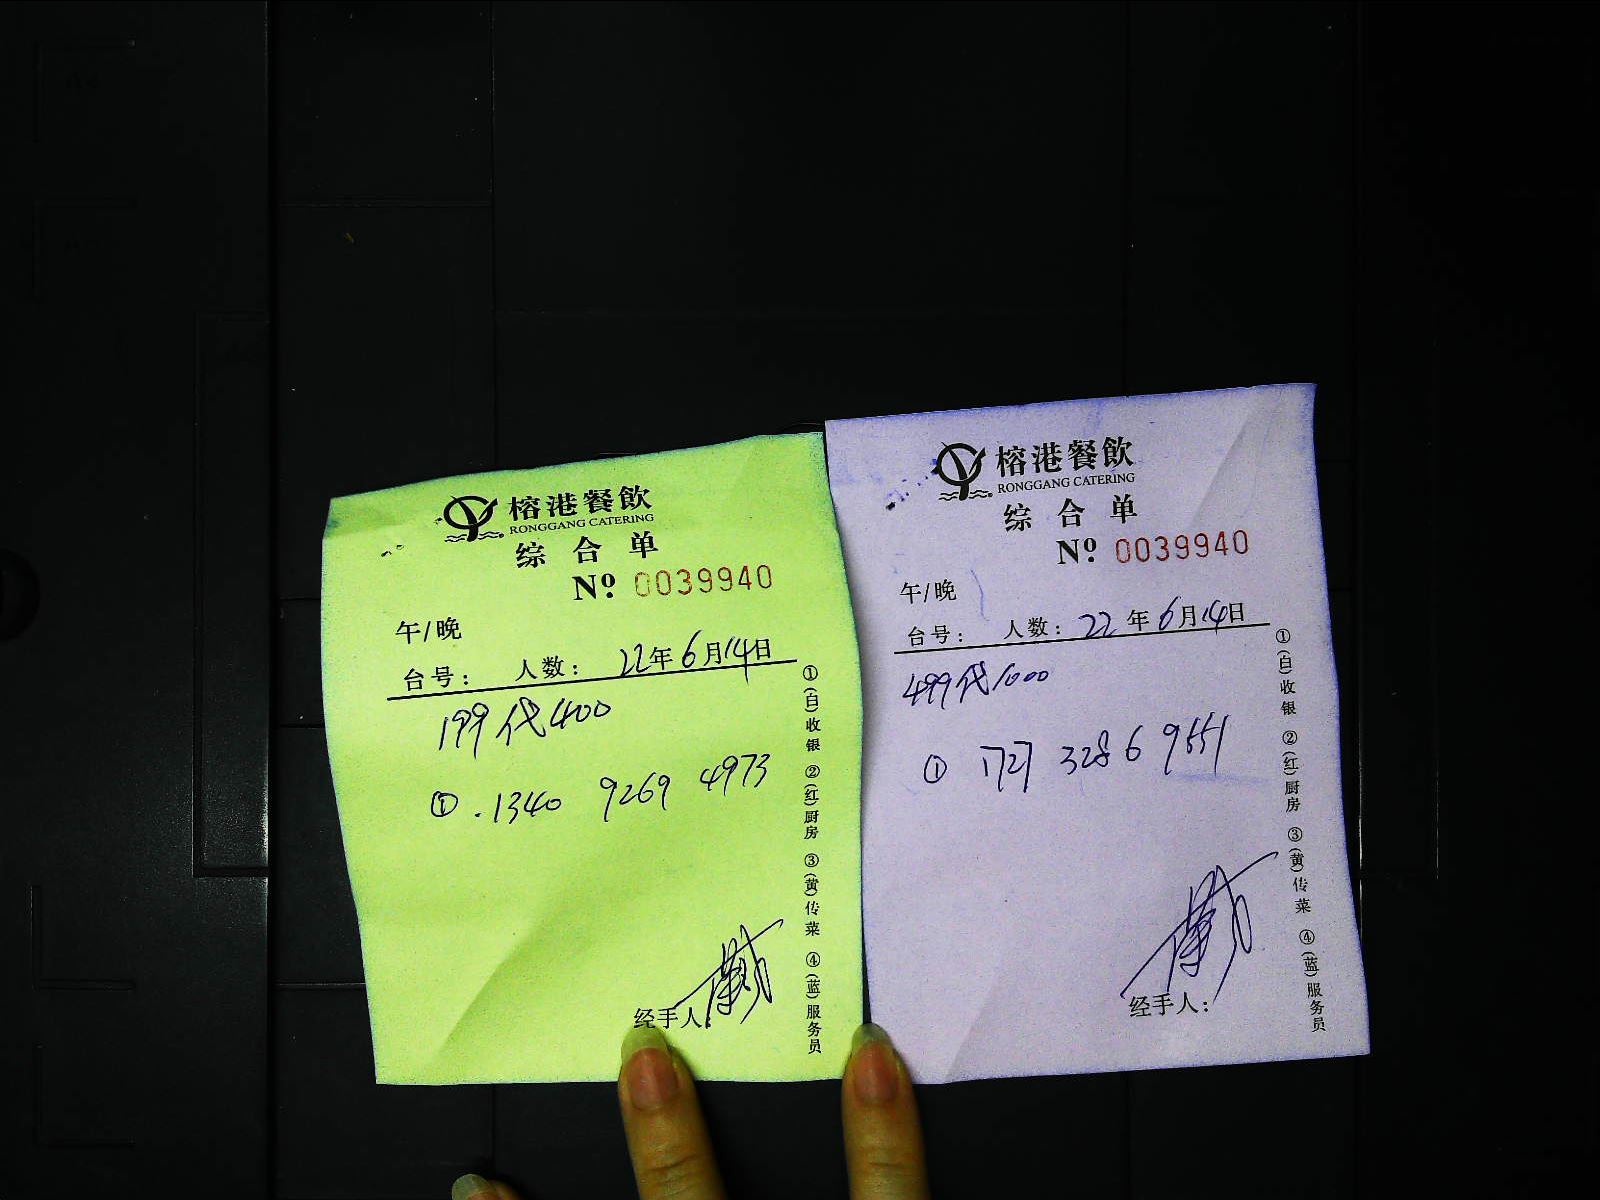 榕港餐飲
RONGGANG CATERING
综合单
Nº 0039940
午/晚
台号： 人数： 22年6月14日
199代400
① .1340 9269 4973
经手人：
①(白)收银 ②(红)厨房 ③(黄)传菜 ④(蓝)服务员
榕港餐飲
RONGGANG CATERING
综合单
Nº 0039940
午/晚
台号： 人数： 22年6月14日
499代1000
① 1727 3286 9551
经手人：
①(白)收银 ②(红)厨房 ③(黄)传菜 ④(蓝)服务员